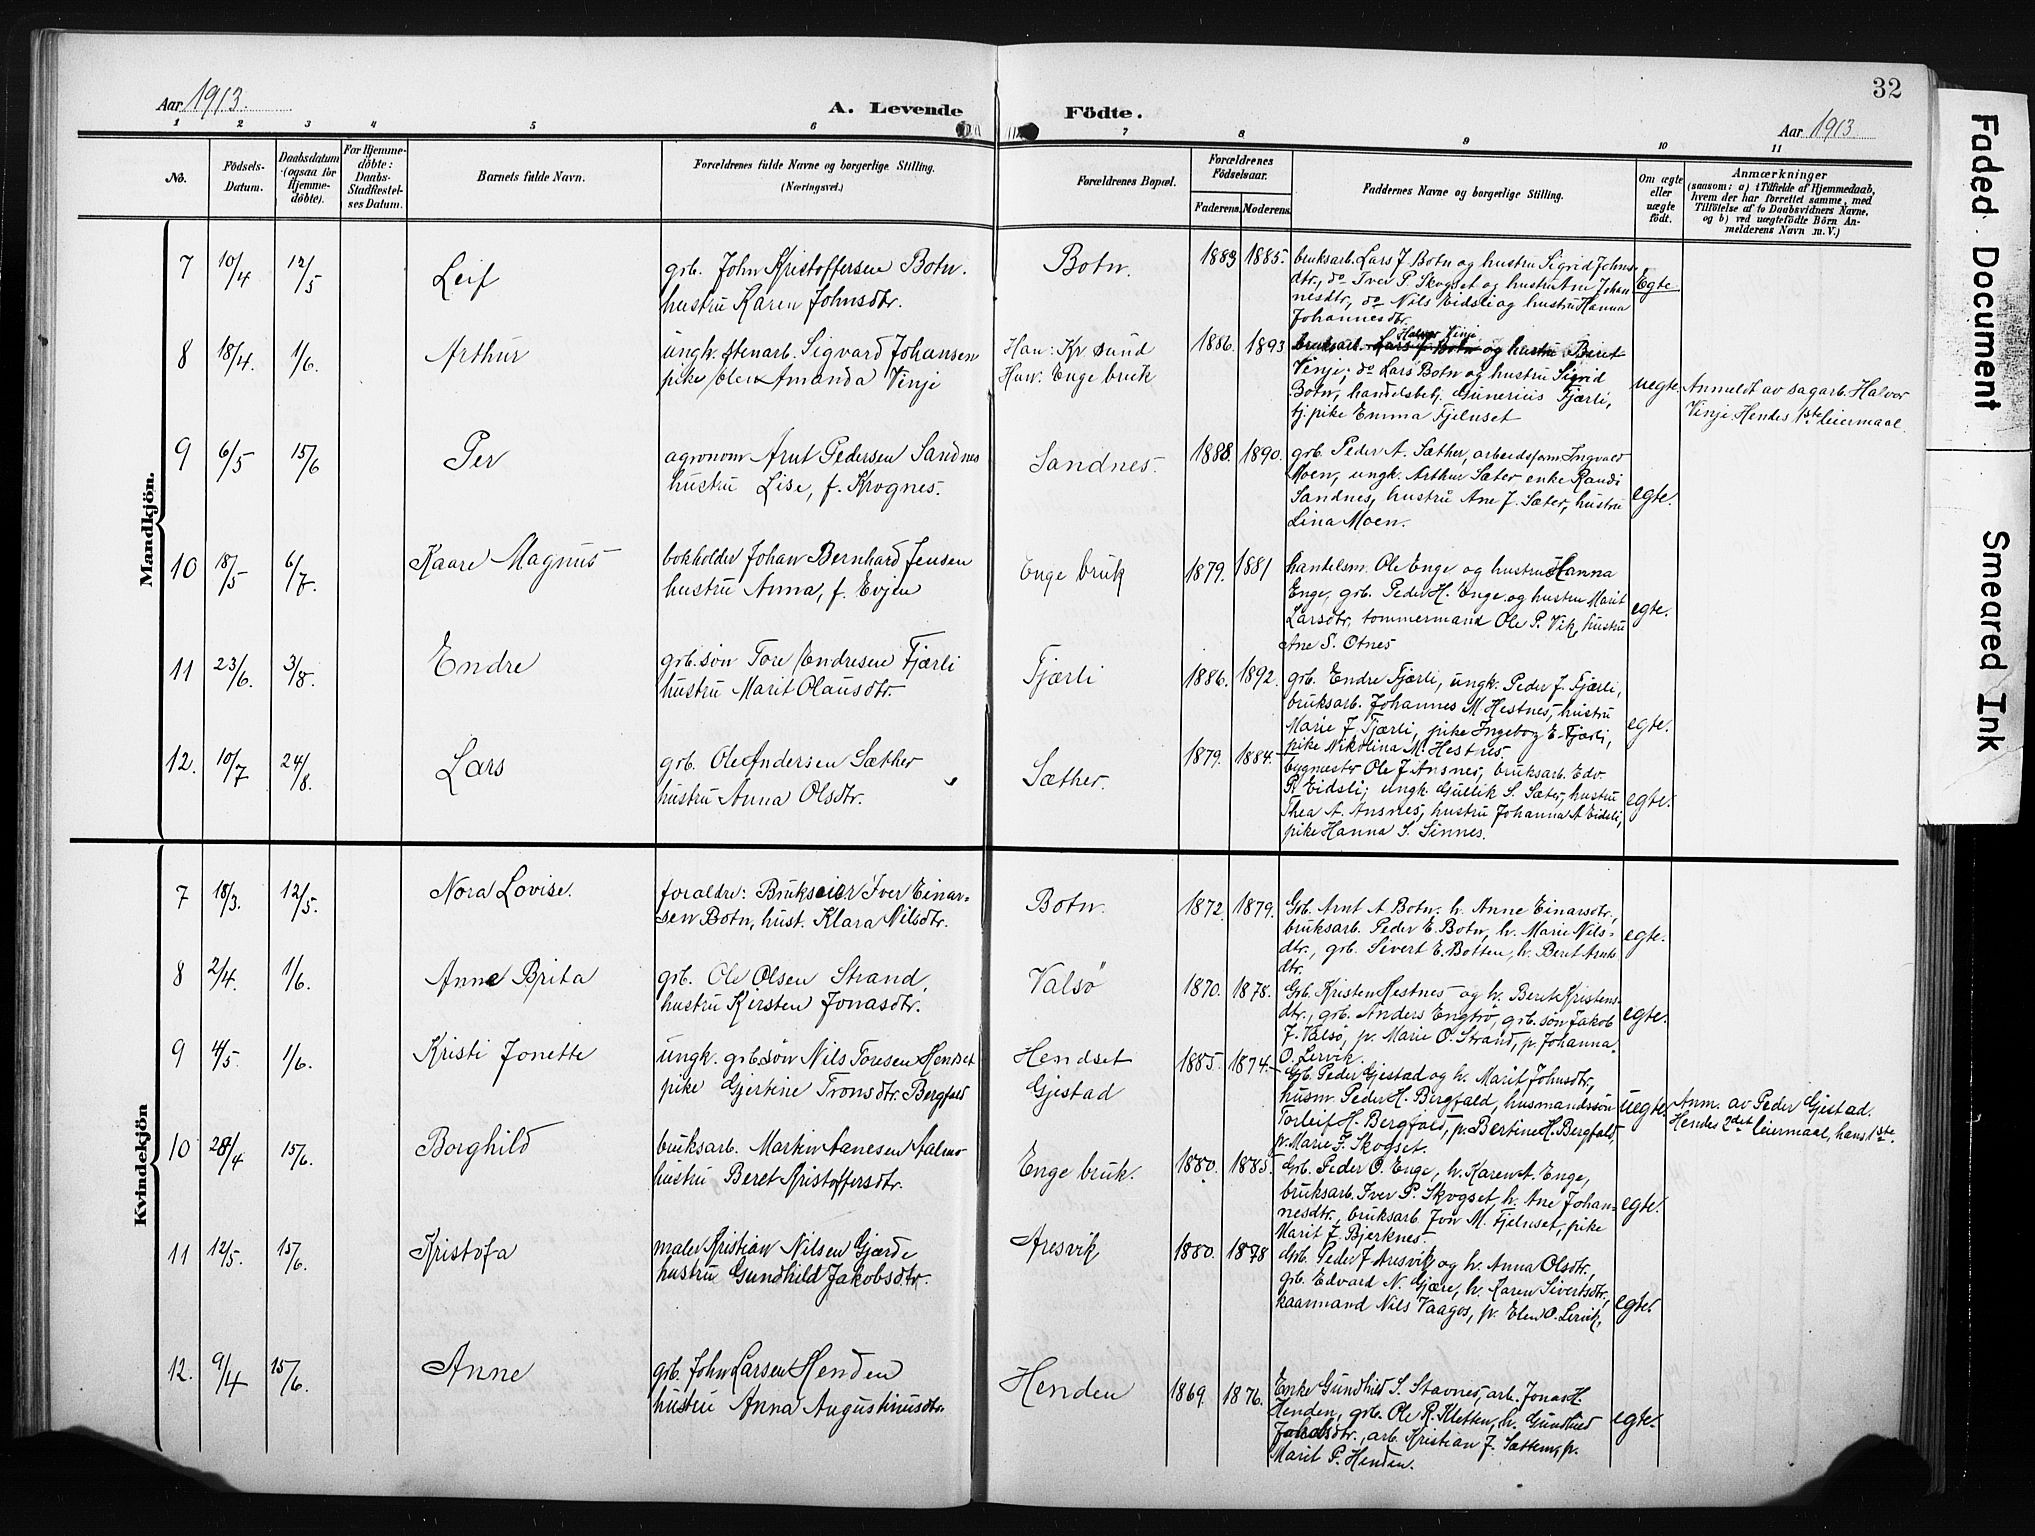 32
Aar 1913.
A. Levende Födte.
Aar 1913
1 2 3 4 5 6 7 8 9 10 11
No.
Födsels-Datum.
Daabsdatum (ogsaa for Hjemme-döbte).
For Hjemme-döbte: Daabs-Stadfæstel-ses Datum.
Barnets fulde Navn.
Forældrenes fulde Navne og borgerlige Stilling. (Næringsvei.)
Forældrenes Bopæl.
Forældrenes Födselsaar.
Faderens. Moderens.
Faddernes Navne og borgerlige Stilling.
Om ægte eller uægte födt.
Anmærkninger
(saasom: a) i Tilfælde af Hjemmedaab,
hvem der har forrettet samme, med
Tilföielse af to Daabsvidners Navne,
og b) ved uægtefödte Börn An-
melderens Navn m. V.)
Mandkjön.
7 10/4 12/5 Leif
grb. John Kristoffersen Botn.
hustru Karen Johnsdtr.
Botn. 1883 1885.
bruksarb. Lars J Botn og hustru Sigrid Johns
dtr., do Iver P. Skogset og hustru Ane Johan
nesdtr, do Nils Eidsli og hustru Hanna
Johannesdtr.
Egte.
8 18/4. 1/6. Arthur
ungk. stenarb. Sigvard Johansen
pike Elen Amanda Vinje
Han: Kr sund
Hun: Enge bruk
1886. 1893
Halvor Vinje
bruksarb. Lars J. Botn og hustru Beret
Vinje; do Lars Botn og hustru Sigrid
Botn, handelsbetj. Gunerius Fjærli,
tj. pike Emma Fjelnset
uegte.
Anmeldt av sagarb. Halvor
Vinje. Hendes 1ste leiermaal.
9 6/5 15/6 Per
agronom Arnt Pedersen Sandnes
hustru Lise, f. Krognes.
Sandnes. 1888. 1890.
grb. Peder A. Sæther, arbeidsform Ingvald
Moen, ungk. Arthur Sæter, enke Randi
Sandnes, hustru Ane J. Sæter, hustru
Lina Moen.
egte.
10 18/5 6/7. Kaare Magnus
bokholder Johan Bernhard Jensen
hustru Anna, f. Evjen
Enge bruk 1879. 1881
handelsm. Ole Enge og hustru Hanna
Enge, grb. Peder H. Enge og hustru Marit
Larsdtr. tømmermand Ole P. Vik, hustru
Ane S. Otnes
egte.
11 23/6. 3/8. Endre
grb.søn Tore Endresen Fjærli
hustru Marit Olausdtr.
Fjærli 1886. 1892.
grb. Endre Fjærli, ungk. Peder J. Fjærli,
bruksarb. Johannes M. Hestnes, hustru
Marie J Fjærli, pike Ingeborg E. Fjærli,
pike Nikolina M. Hestnes
egte.
12. 10/7 24/8. Lars
grb. Ole Andersen Sæther
hustru Anna Olsdtr.
Sæther. 1879. 1884.
bygmestr Ole J Ansnes, bruksarb. Edv.
P. Eidsli; ungk Gullik S. Sæter, hustru
Thea A. Ansnes, hustru Johanna A Eidsli,
pike Hanna S. Sinnes.
egte.
Kvindekjön
7 18/3. 12/5. Nora Lovise.
foraldre: Brukseier Iver Einar-
sen Botn, hust. Klara Nilsdtr.
Botn. 1872. 1879.
Grb. Arnt A Botn. h. Anne Einarsdtr,
bruksarb. Peder E. Botn, h. Marie Nils-
dtr., grb. Sivert E. Botten, h. Beret Arnts
dtr.
egte.
8 2/4. 1/6. Anne Brita
grb. Ole Olsen Strand,
hustru Kirsten Jonasdtr.
Valsö 1870. 1878.
Grb. Kristen Hestnes og h. Beret Kristens-
dtr., grb. Anders Engtrø, grb. søn Jakob
J. Valsø, p. Marie O. Strand, p. Johanna
O. Lervik.
egte.
9 4/5. 1/6. Kristi Jonette
ungk. grb.søn Nils Toresen Hendset
pike Gjertine Tronsdtr. Bergfald
Hendset
Gjestad
1885. 1874.
Grb. Peder Gjestad og h. Marit Johnsdtr,
husm. Peder H. Bergfald, husmandssøn
Torleif H. Bergfald, p. Bertine H. Bergfald,
p. Marie J. Skogset.
uegte
Anm. av Peder Gjestad.
Hendes 2det leiermaal, hans 1ste.
10 28/4 15/6. Borghild
bruksarb. Martin Aanesen Aalmo
hustru Beret Kristoffersdtr.
Enge bruk. 1880. 1885.
Grb. Peder O. Enge, h. Karen A. Enge,
bruksarb. Iver P. Skogset, h. Ane Johan-
nesdtr., bruksarb. Jon M. Fjelnset, pike
Marit J. Bjerknes.
egte.
11 12/5. 15/6. Kristofa
maler Kristian Nilsen Gjærde
hustru Gundhild Jakobsdtr.
Aresvik 1880. 1878
Grb. Peder J Aresvik og h. Anna Olsdtr,
grb. Edvard N. Gjære, h. Karen Sivertsdtr.,
kaarmand Nils Vaagos, p. Elen O. Lervik,
egte
12. 9/4 15/6. Anne
grb. John Larsen Henden
hustru Anna Augustinusdtr.
Henden 1869. 1876.
Enke Gundhild S. Stavnes, arb. Jonas H.
Henden, grb. Ole R. Kletten, h. Gundhild
Jakobsdtr., arb. Kristian J. Sættem, p.
Marit P. Henden.
egte.
Faded Document
Smeared Ink